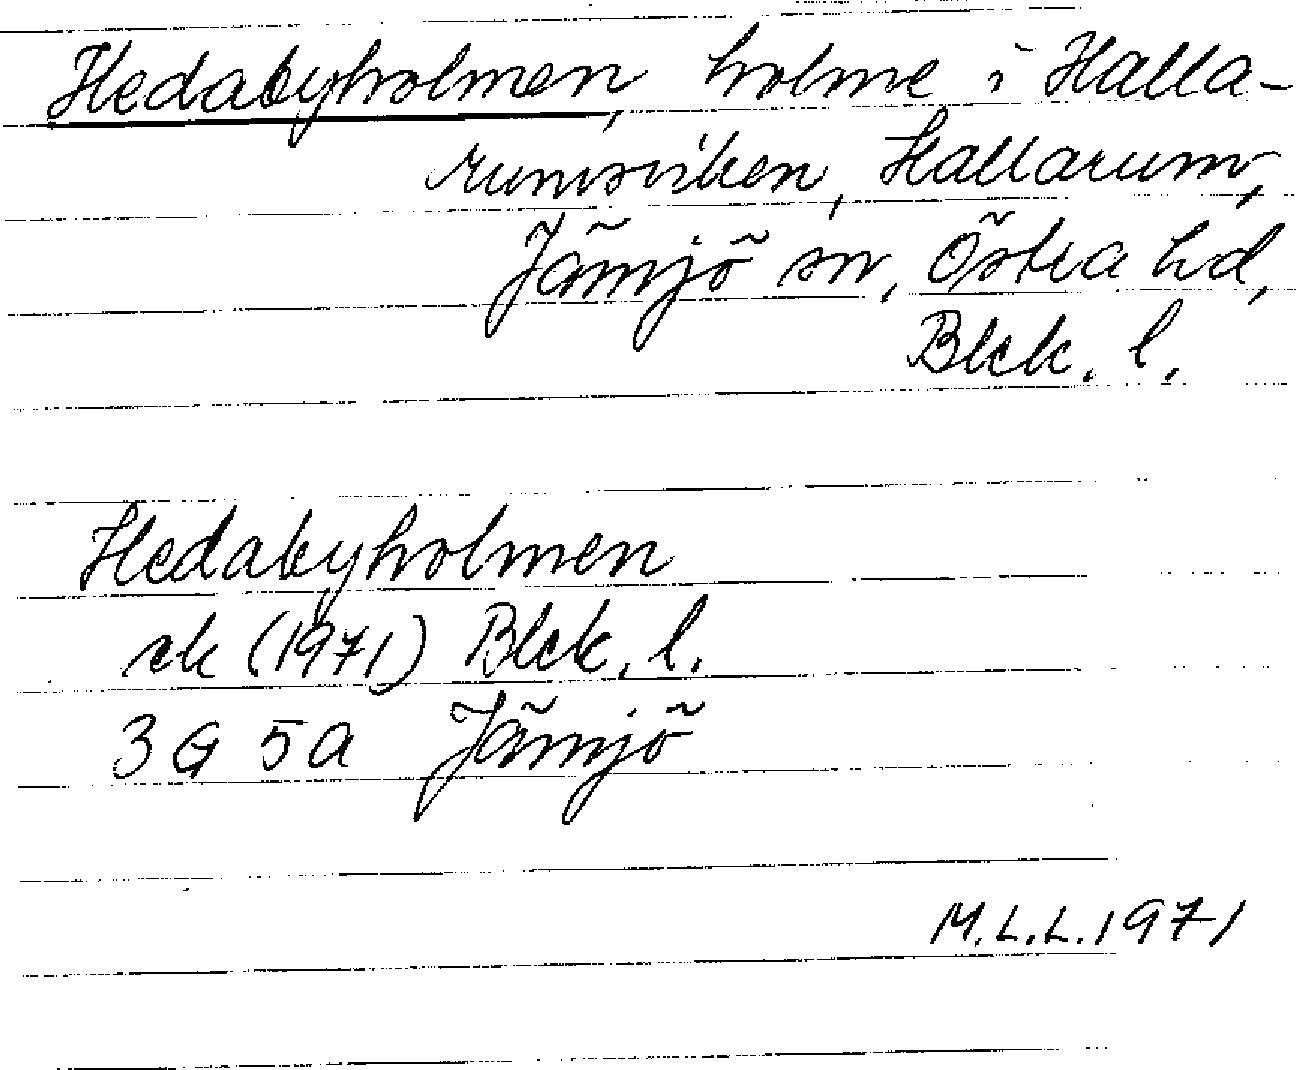 Hedabyholmen, holme i Halla-
rumsviken, Hallarum,
Jämjö sn, Östra hd,
Blek. l.
Hedabyholmen
ek (1971) Blek. l.
3G 5a Jämjö
M.L.L. 1971